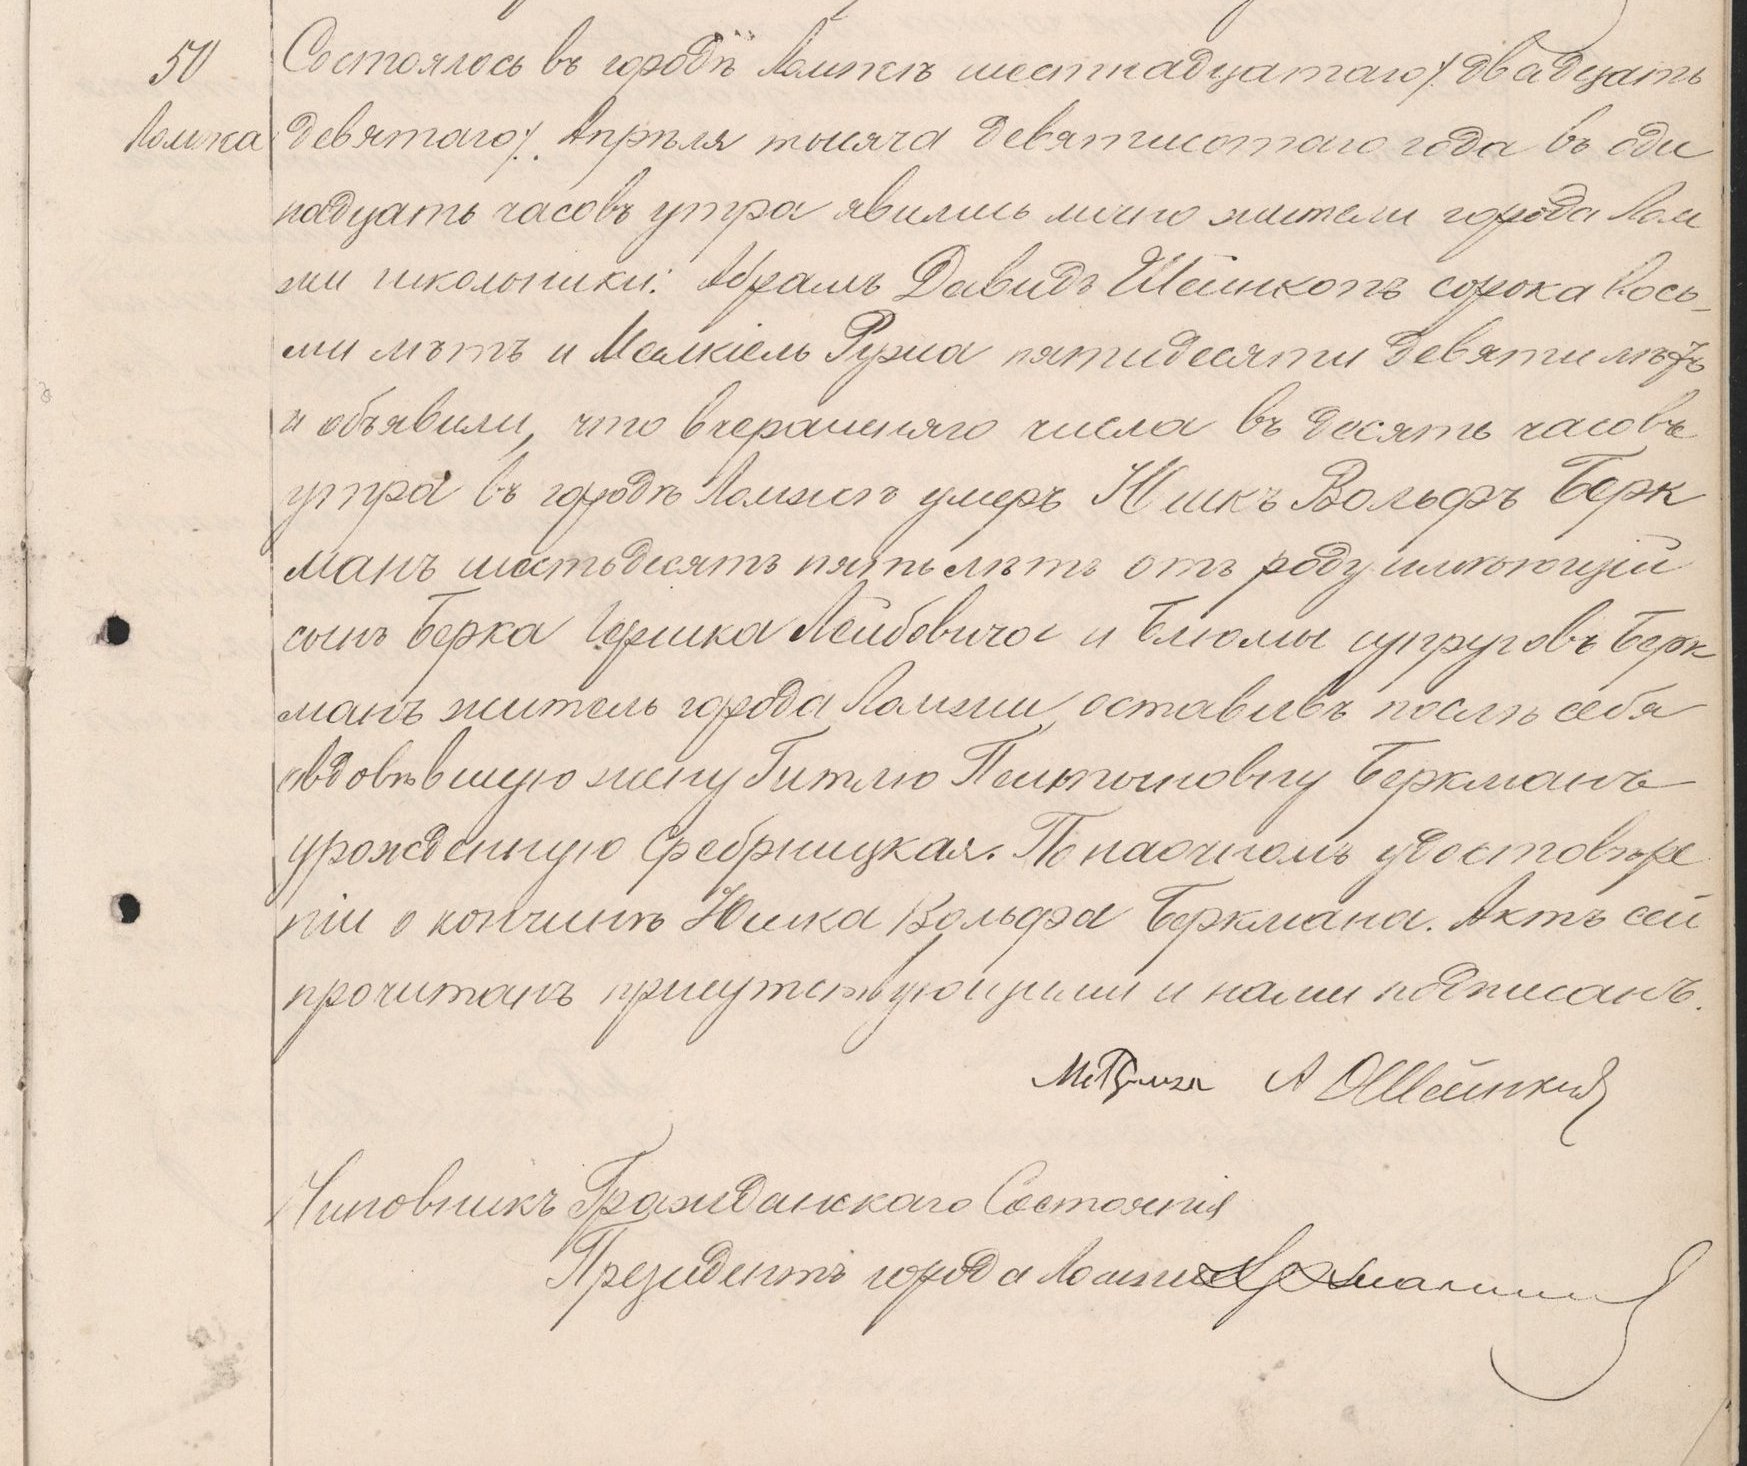 50
Ломжа
Состоялось въ городѣ Ломжѣ шестнадцатаго /двадцать
девятаго/. Апрѣля тысяча девятисотаго года въ оди
надцать часовъ утра явились лично жители города Лом
жи школьники: Абрамъ Давидъ Шейнкопъ сорока вось-
ми лѣтъ и Малкіель Ружа пятидесяти девяти лѣтъ
и объявили, что вчерашняго числа въ десять часовъ
утра въ городѣ Ломжѣ умеръ Юшкъ Вольфъ Берк
манъ шестьдесятъ пять лѣтъ отъ роду имѣющій
сынъ Берка Гершка Лейбовича и Блюмы супруговъ Берк
манъ житель города Ломжи оставивъ послѣ себя
овдовѣвшую жену Гитлю Берkманъ
урожденную Сребрницкая. По наочномъ удостовѣре
ніи о кончинѣ Юшка Вольфа Беркмана. Актъ сей
прочитанъ присутствующими и нами подписанъ.
М Ружа А Д Шейнкоп
Чиновникъ Гражданскаго Состоянія
Президентъ города Ломжи